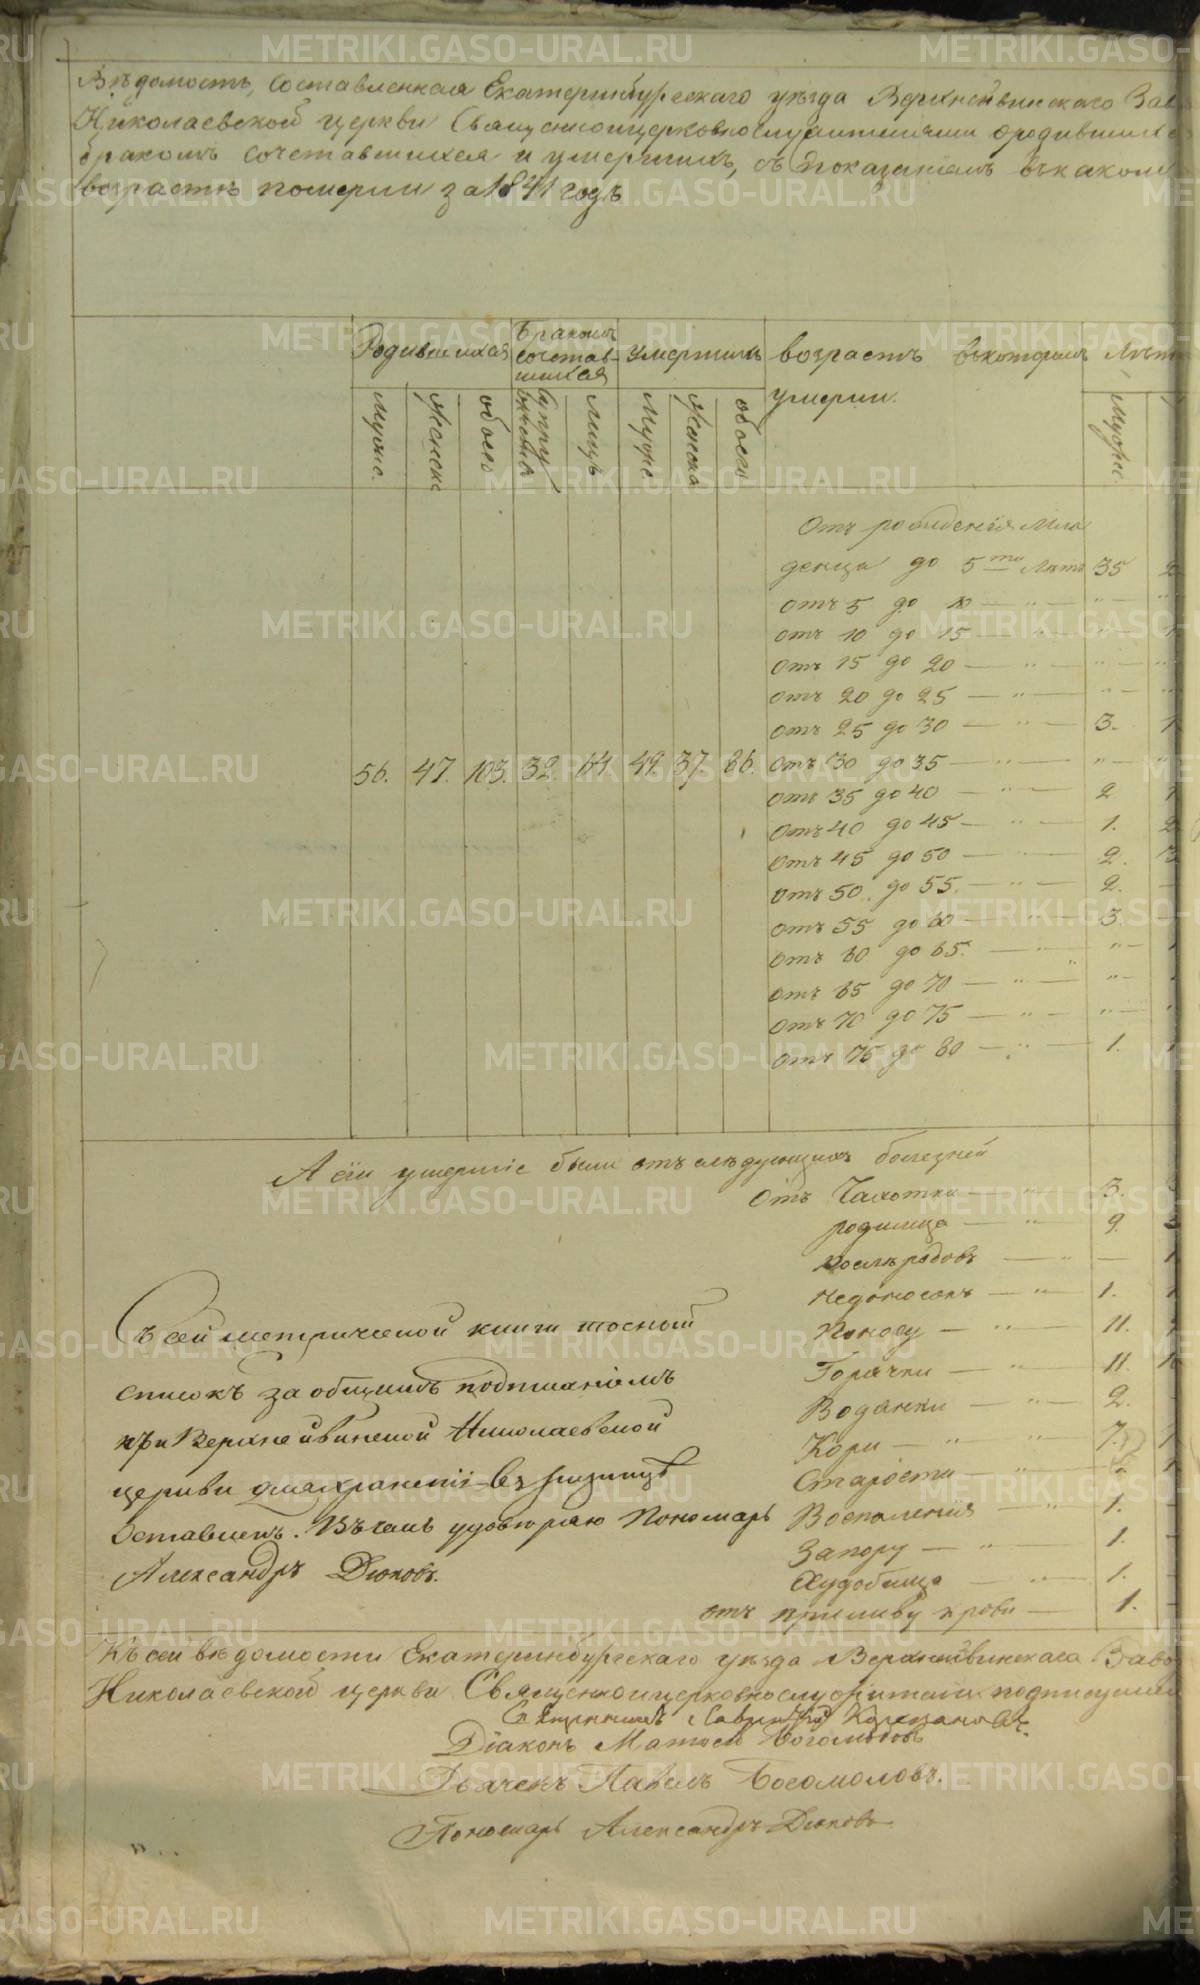 Вѣдомость, составленная Екатеринбургскаго уѣзда Верхнейвинскаго Зав
Николаевской церкви Священноицерковнослужителями ородившихс
бракомъ сочетавшихся и умершихъ, съ показаніемъ въкаком
возрастѣ померли за 1841 годъ
Родившихся
Бракомъ сочетавшихся
Умершихъ
возрастъ въкоторомъ умерли.
Лѣта
Мужс.
Женска
обоего
Супружевъ
Лицъ
Мужс.
Женска
обоего
Мужс
Отъ рожденія мла
денца до 5ти Лѣтъ 35 2
отъ 5 до 10 — " — "
отъ 10 до 15 — " — " 1
отъ 15 до 20 — " — "
отъ 20 до 25 — " — "
отъ 25 до 30 — " — 3. 1
56. 47. 103. 32. 64. 49. 37. 86. отъ 30 до 35 — " — "
отъ 35 до 40 — " — 2 1
отъ 40 до 45 — " — 1. 2
отъ 45 до 50 — " — 2.
отъ 50 до 55. — " — 2.
отъ 55 до 60 — " — 3.
отъ 60 до 65. — " — "
отъ 65 до 70 — " — "
отъ 70 до 75 — " — "
отъ 75 до 80 — " — 1.
А сіи умершіе были отъ слѣдующихъ болезней
Отъ Чахотки — " 3.
родимца — " — 9.
послѣродовъ — " —
недоносокъ — " — 1.
Поносу — " — 11.
Горячки — " 11.
Водянки — " — 2.
Кори — " — " 7.
Старости — " — "
Воспаленія — " 1.
Запору — " — 1.
Худобища — " — 1.
отъ приливу крови — 1.
Съ сей метрической книги тосный
списокъ за общимъ подписаніемъ
при Верхнейвинской Николаевской
церкви въ ризницѣ
Оставленъ. Въчемъ удовѣряю Пономарь
Александръ Дюковъ.
Къ сей вѣдомости Екатеринбургскаго уѣзда Верхнейвинскаго Заво
Николаевской церкви Священноицерковнослужители подписуемся
Священникъ Каузановъ.
Діаконъ Матвей Богомоловъ
Дьячекъ Павелъ Богомоловъ.
Пономарь Александръ Дюковъ
METRIKI.GASO-URAL.RU